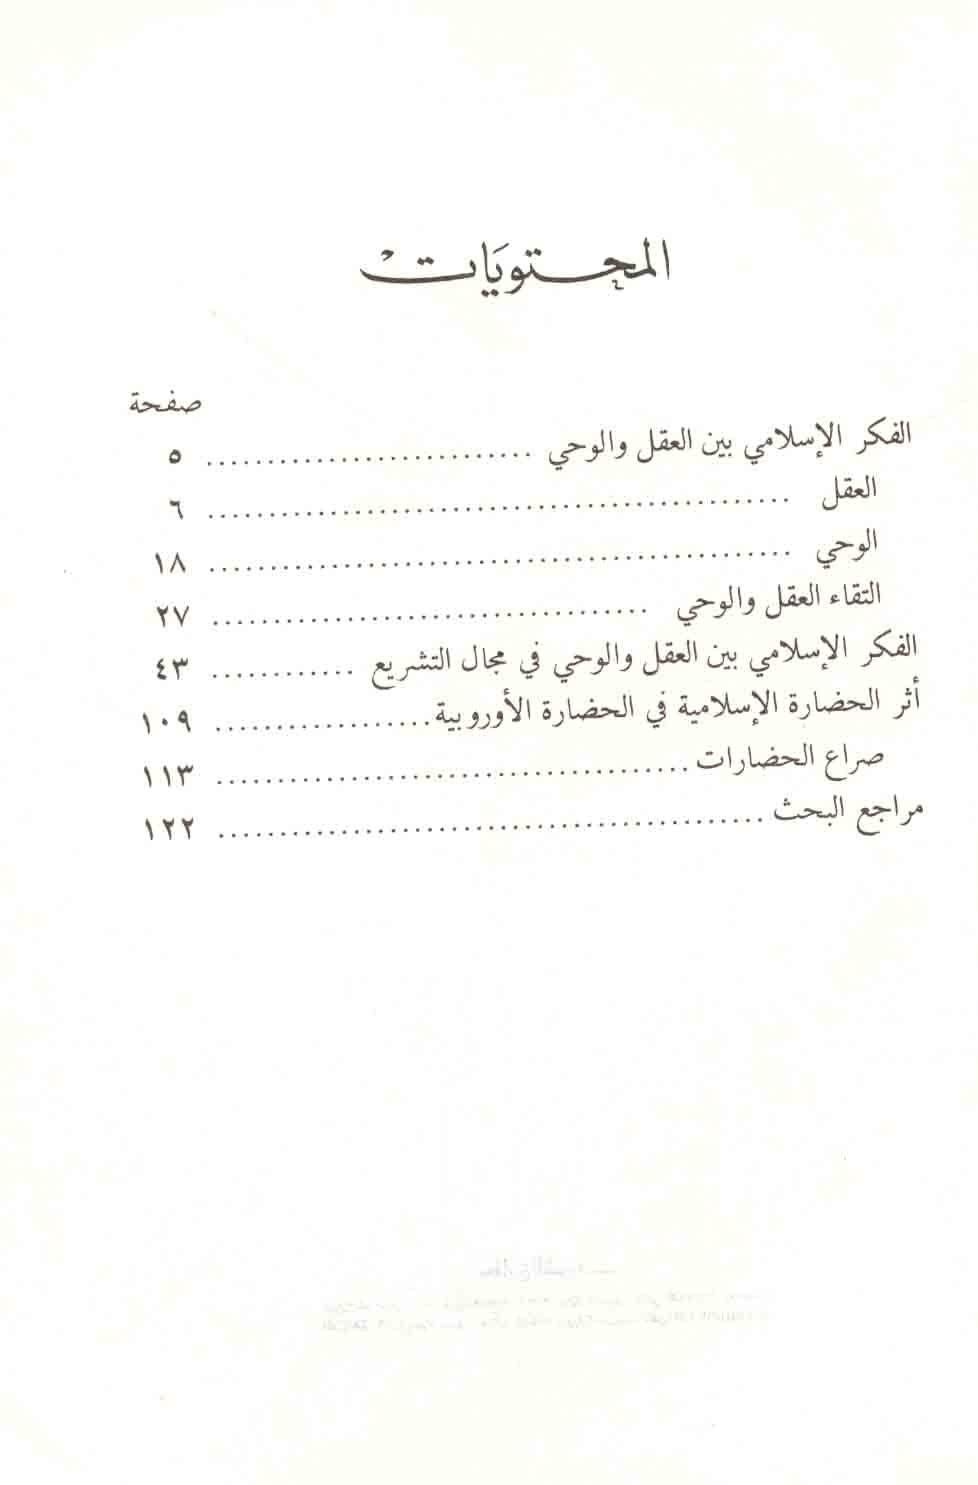 المحتويات
صفحة
الفكر الإسلامي بين العقل والوحي .......................... ٥
العقل ............................................... ٦
الوحي ............................................... ١٨
التقاء العقل والوحي .................................... ٢٧
الفكر الإسلامي بين العقل والوحي في مجال التشريع ............ ٤٣
أثر الحضارة الإسلامية في الحضارة الأوروبية .................. ١٠٩
صراع الحضارات ....................................... ١١٣
مراجع البحث ............................................. ١٢٢